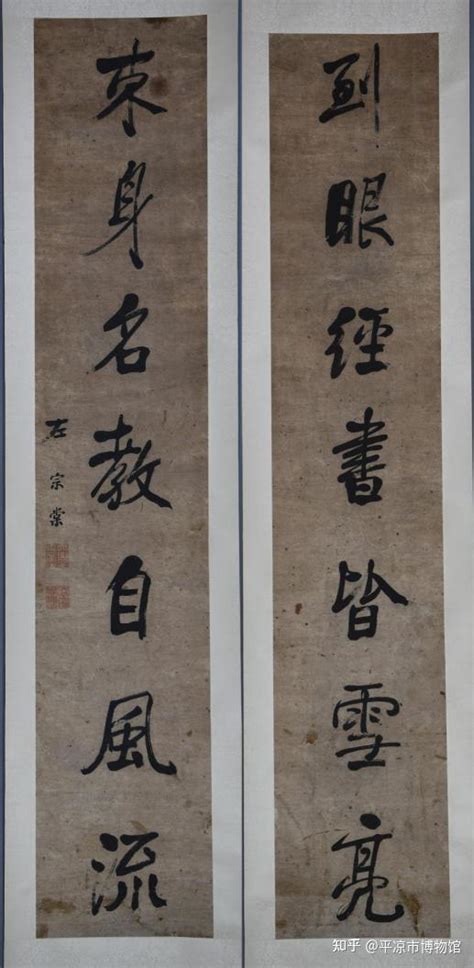 到眼經書皆雪亮
束身名教自風流
左宗棠
知乎 @平凉市博物馆